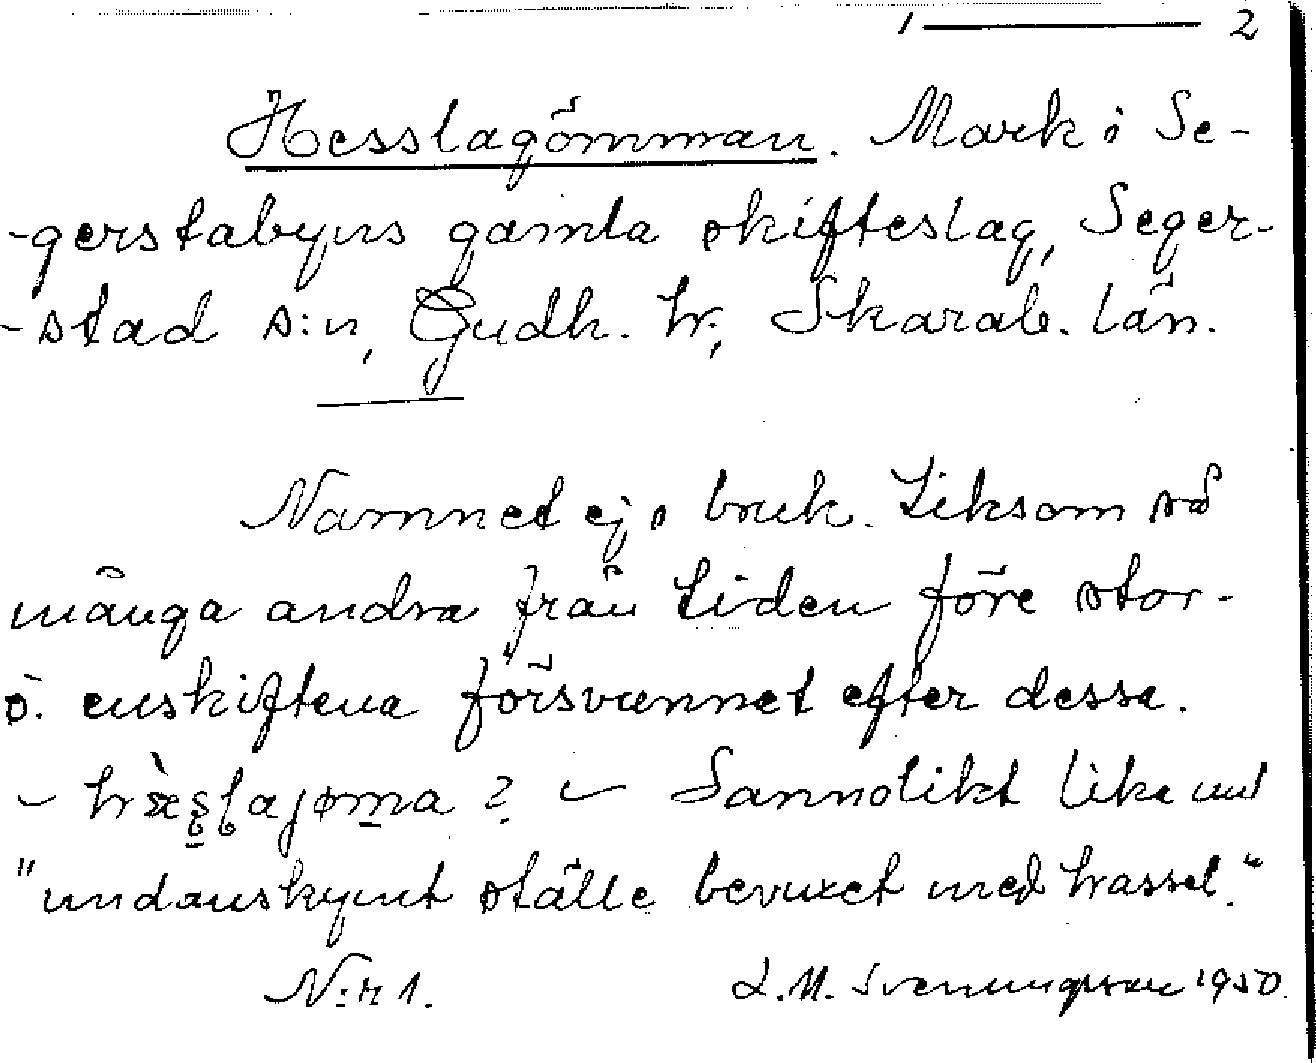 1 ——— 2
Hesslagömman. Mark i Se-
-gerstabyns gamla skifteslag, Seger-
-stad s:n, Gudh. hr, Skarab. län.
Namnet ej i bruk. Liksom så
många andra från tiden före stor-
o. enskiftena försvunnet efter dessa.
– ? – Sannolikt lika med
"undanskymt ställe bevuxet med hassel."
N:r 1. L.M. Svenungsson 1950.